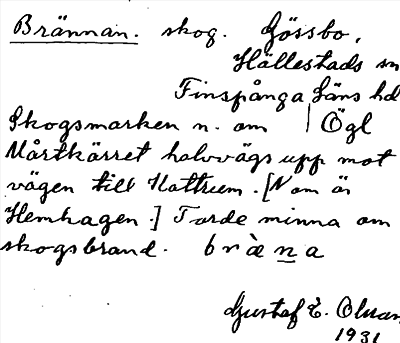 Brännan. skog. Gössbo,
Hällestads sn
Finspånga läns hd
Skogsmarken n. om | Ögl
Mårtkärret halvvägs upp mot
vägen till Hattrum. [Nom är
Hemhagen.] Torde minna om
skogsbrand. bràna
Gustaf E. Olsson
1931